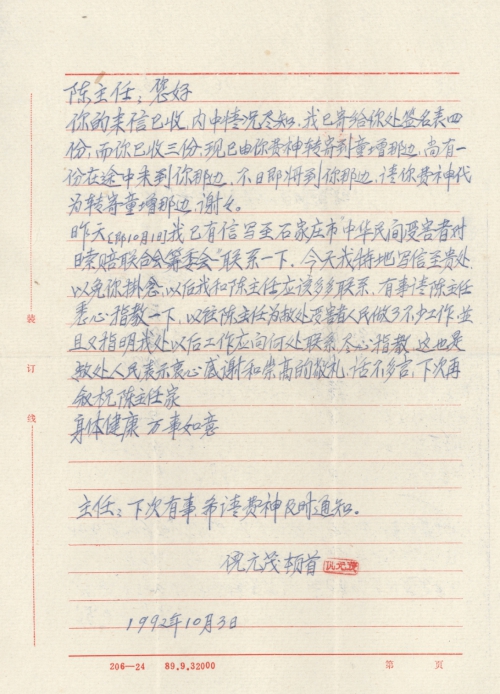 陈主任：您好
你的来信已收，内中情况尽知，我已寄给你处签名表四
份，而你已收三份，现已由你费神转寄到童增那边，尚有一
份在途中未到你那边，不日即将到你那边，请你费神代
为转寄童增那边，谢々。
昨天（即10月1日）我已有信写至石家庄市“中华民间受害者对
日索赔联合会筹委会”联系一下，今天我特地写信至贵处，
以免你掛念，以后我和陈主任应该多多联系，有事请陈主任
悉心指教一下，以往陈主任为敝处受害人民做了不少工作，並
且又指明我处以后工作应向何处联系，尽心指教，这也是
敝处人民表示衷心感谢和崇高的敬礼，话不多言，下次再
叙祝陈主任家
身体健康 万事如意
主任：下次有事，希请费神及时通知。
倪元茂 顿首
1992年10月3日
装
订
线
206—24 89.9.32000
第 页